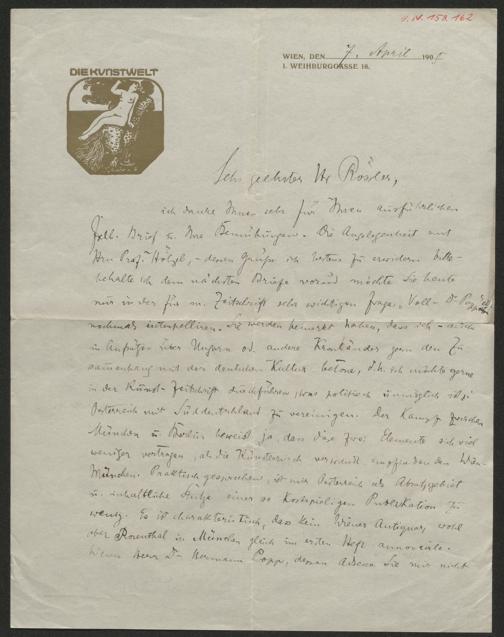 I.N. 151.162
DIE KUNSTWELT
WIEN, DEN 7. April 190
I. WEIHBURGGASSE 18.
Sehr geehrter Hr Rössler,
ich danke Ihnen sehr für Ihren ausführlichen
frdl. Brief u. Ihre Bemühungen. Die Angelegenheit mit
Hrn Prof. Hölzel, – dessen Grüße ich bestens zu erwidern bitte –
behalte ich dem nächsten Briefe vor und möchte Sie heute
nur in der für m. Zeitschrift sehr wichtigen Frage Voll- Dr
nochmals interpellieren. Sie werden bemerkt haben, dass ich – auch
in Aufsätzen über Ungarn od. andere Kronländer gern den Zu
sammenhang mit der deutschen Kultur betone, d.h. ich möchte gerne
in der Kunst-Zeitschrift durchführen, was politisch unmöglich ist:
Österreich mit Süddeutschland zu vereinigen. Der Kampf zwischen
München u. Berlin beweist ja, dass diese zwei Elemente sich viel
weniger vertragen, als die künstlerisch verwandt empfindenden Wien
München. Praktisch gesprochen, ist mir Österreich als Absatzgebiet
u. inhaltliche Stütze einer so kostspieligen Publikation zu
wenig. Es ist charakteristisch, dass kein Wiener Antiquar, wohl
aber Rosenthal in München gleich im ersten Heft annoncierte.
Herr Dr Hermann Popp, dessen Adresse Sie mir nicht